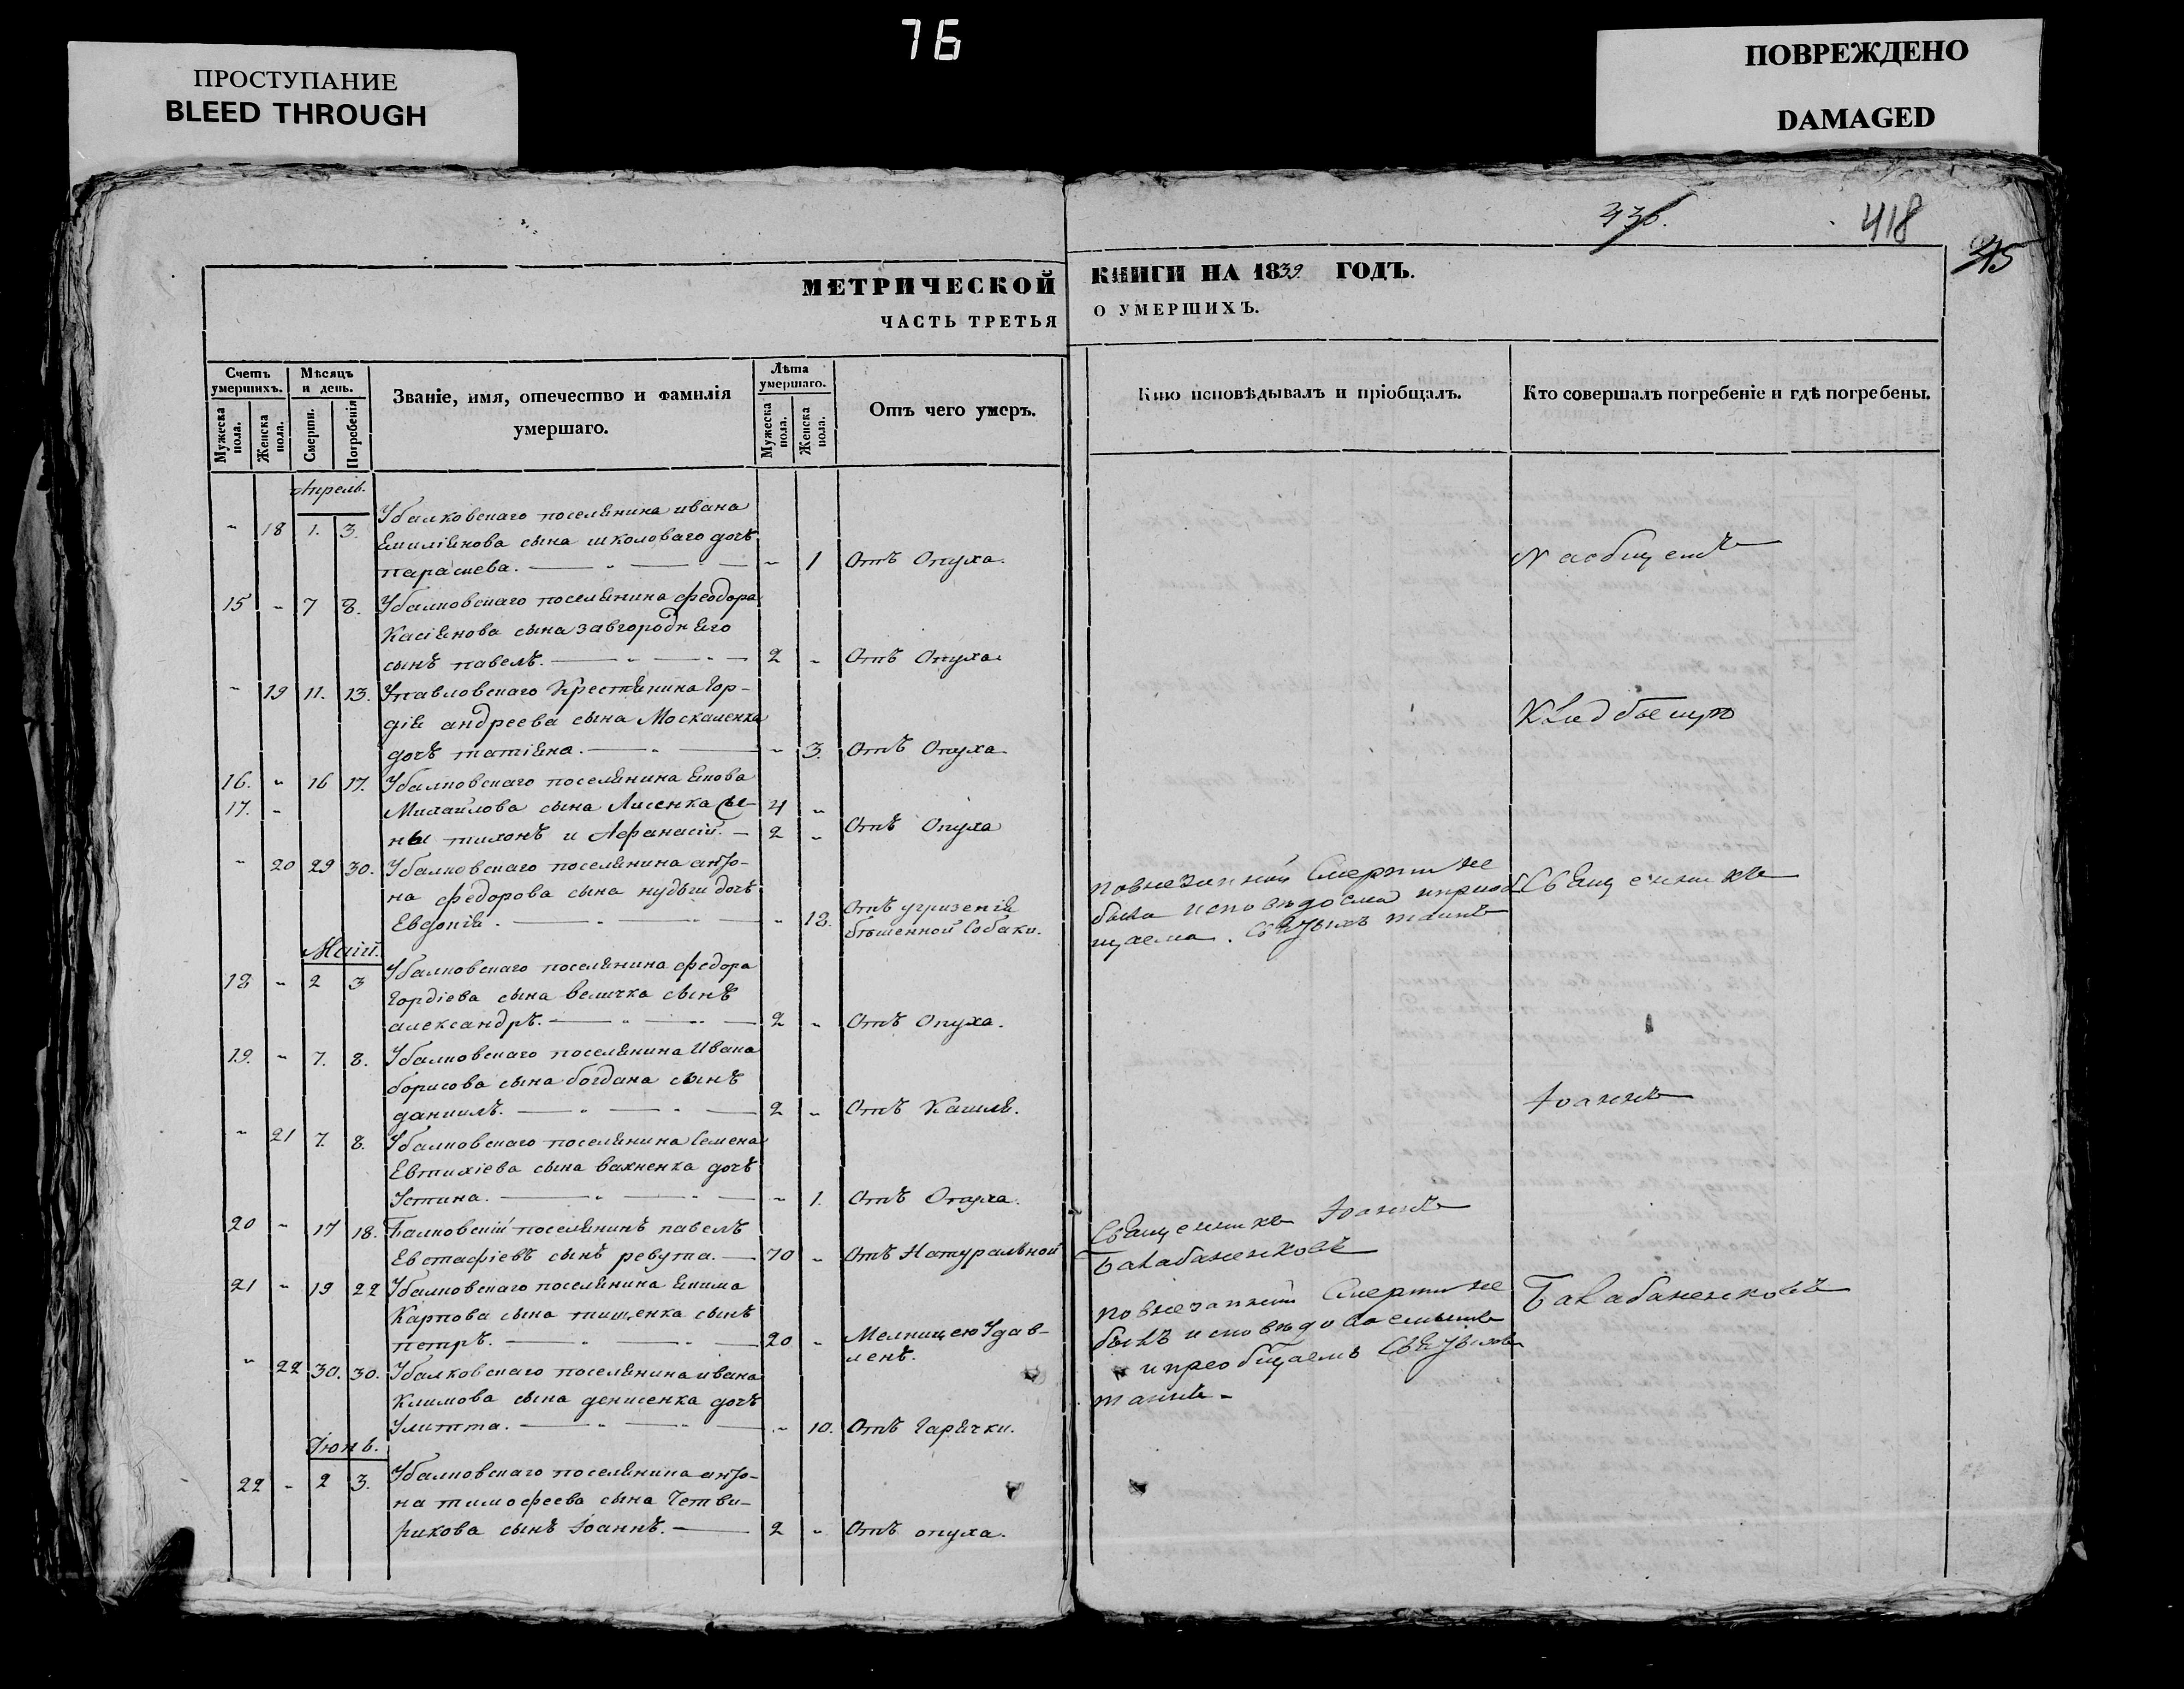 76
ПРОСТУПАНИЕ
BLEED THROUGH
ПОВРЕЖДЕНО
DAMAGED
418
МЕТРИЧЕСКОЙ КНИГИ НА 1839 ГОДЪ.
ЧАСТЬ ТРЕТЬЯ О УМЕРШИХЪ.
Счетъ умершихъ.
Мужеска пола.
Женска пола.
Мѣсяцъ и день.
Смерти.
Погребенія
Званіе, имя, отечество и фамилія умершаго.
Лѣта умершаго.
Мужеска пола.
Женска пола.
Отъ чего умеръ.
Кто исповѣдывалъ и пріобщалъ.
Кто совершалъ погребеніе и гдѣ погребены.
Апрель.
Убалковскаго поселянина ивана
" 18 1. 3. Емиліянова сына школоваго дочь
параскева. " 1 Отъ Опуха.
На общемъ
15 " 7 8. Убалковскаго поселянина феодора
Касіянова сына завгороднего
сынъ павелъ. 2 " Отъ Опуха.
" 19 11. 13. Упавловскаго Крестянина Гор-
дія андреева сына Москаленка
Кладбыщю
дочь татіяна. " 3. Отъ Опуха
16. " 16 17. Убалковскаго поселянина якова
17. " Михаилова сына Лисенка сы- 4 "
ны тихонъ и Афанасій. 2 " Отъ Опуха
" 20 29 30. Убалковскаго поселянина анто-
на федорова сына кудыги дочь
Евдокія. " 18. Отъ угризенія
бѣшенной собаки.
повнезапной Смерти не
была исповѣдоєма ипріоб
щаема. Святыхъ таинъ
Священникъ
Маій.
18 " 2 3 Убалковскаго поселянина федора
Гордіева сына величка сынъ
александръ. 2 " Отъ Опуха.
19. " 7. 8. Убалковскаго поселянина Ивана
борисова сына богдана сынъ
даниилъ. 2 " Отъ Кашля.
Іоаннъ
" 21 7. 8. Убалковскаго поселянина Семена
Евтихіева сына вахненка дочь
Устина. " 1. Отъ Опуха.
20 " 17 18. Балковскій поселянинъ павелъ
Евстафіевъ сынъ ревута. 70 " Отъ Натуральной
Священникъ Іоаннъ
Балабаненковъ
21 " 19 22 Убалковскаго поселянина якима
Карпова сына тищенка сынъ
петръ. 20 " Мелницею Удав-
ленъ.
повнезапной Смерти не
былъ исповѣдо
ипреобщаемъ Святыхъ
таинъ
Балабаненковъ
" 22 30. 30. Убалковскаго поселянина ивана
Климова сына денисенка дочь
Улитта. " 10. Отъ Гарячки.
Іюнь.
22 " 2 3. Убалковскаго поселянина анто-
на тимофеева сына Четве-
рикова сынъ Іоаннъ. 2 " Отъ опуха.